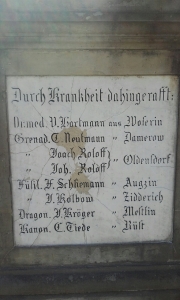 Durch Krankheit dahingerafft:
Dr. med. V. Hartmann aus Woserin
Grenad. C. Neumann " Damerow
" Joach. Roloff } " Oldensdorf
" Joh. Roloff }
Füsil. F. Schliemann " Augzin
" J. Kölbow " Zidderich
Dragon. J. Kröger " Mestlin
Kanon. C. Tiede " Rüst